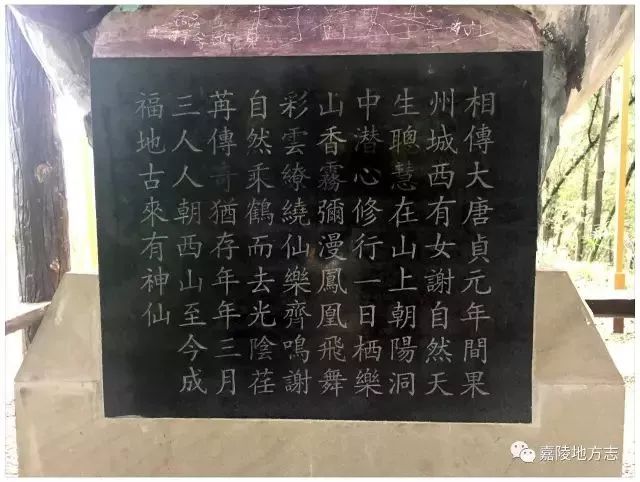 相傳大唐貞元年間果
州城西有女謝自然天
生聰慧在山上朝陽洞
中潛心修行一日栖樂
山香霧彌漫鳳凰飛舞
彩雲繚繞仙樂齊鳴謝
自然乘鶴而去光陰荏
苒傳奇猶存年年三月
三人人朝西山至今成
福地古來有神仙
嘉陵地方志